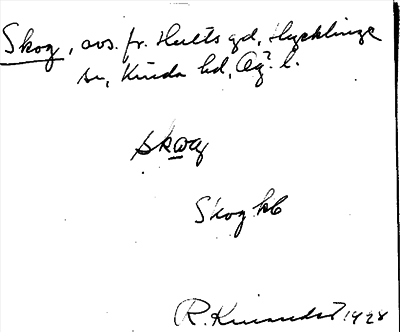 Skog, avs. fr. Hults gd, Hycklinge
sn, Kinda hd, Ög. l.
skωg
Skog hb
R. 1928